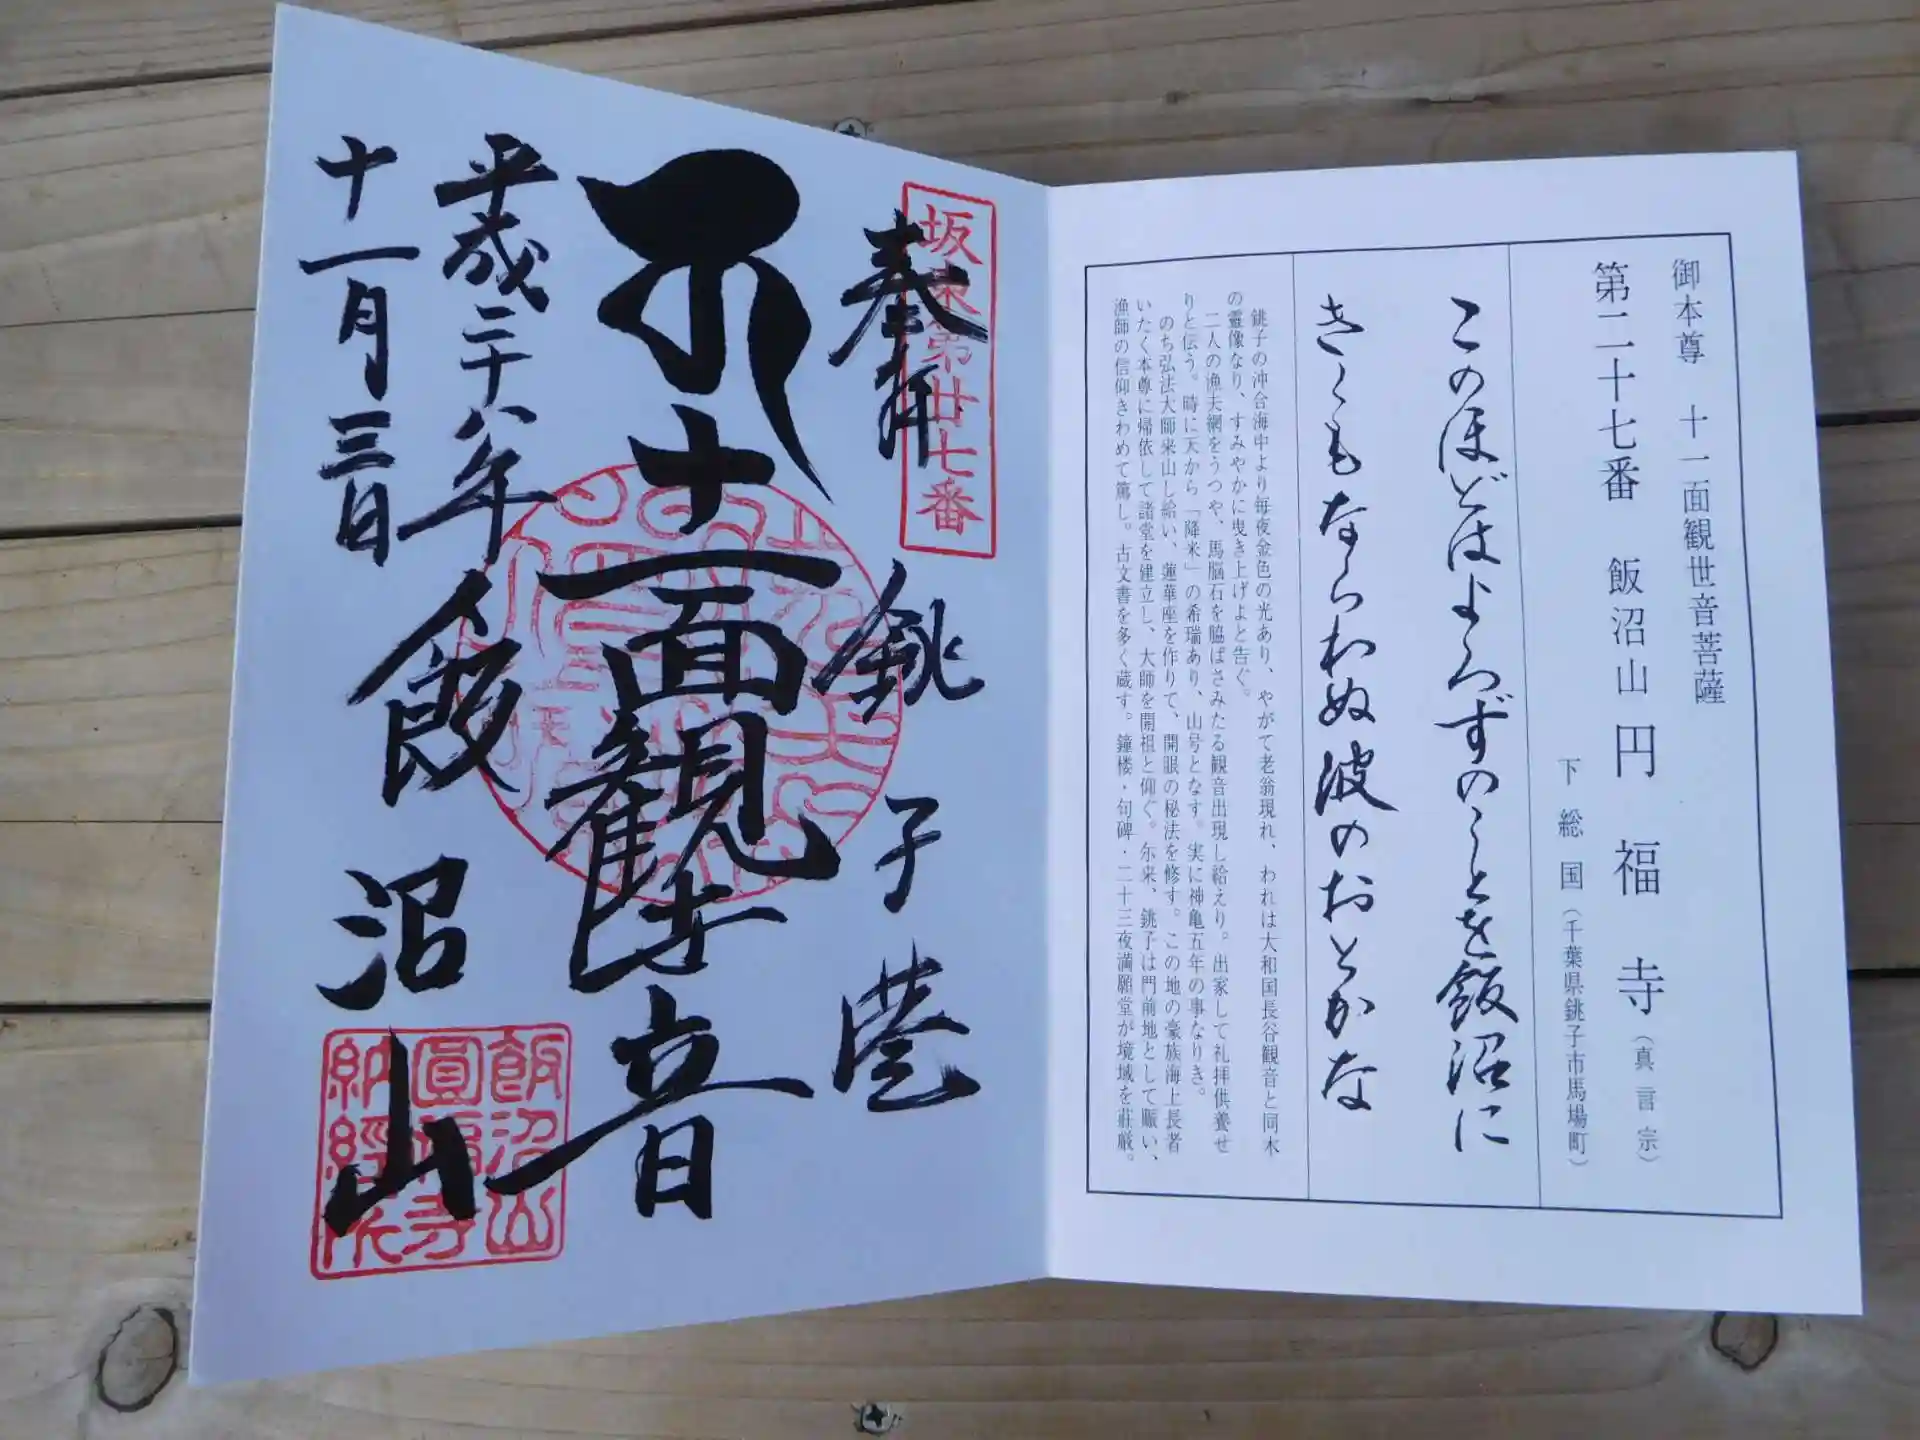 御本尊　十一面観世音菩薩
第二十七番　飯沼山　円福寺（真言宗）
下総国（千葉県銚子市馬場町）
このほどはよろづのことを飯沼に
きくもならわぬ波のおとかな
銚子の沖合海中より毎夜金色の光あり、やがて老翁現れ、われは大和国長谷観音と同木
の霊像なり、すみやかに曳き上げよと告ぐ。
二人の漁夫網をうつや、馬脳石を脇ばさみたる観音出現し給えり。出家して礼拝供養せ
りと伝う。時に天から「降米」の希瑞あり、山号となす。実に神亀五年の事なりき。
のち弘法大師来山し給い、蓮華座を作りて、開眼の秘法を修す。この地の豪族海上長者
いたく本尊に帰依して諸堂を建立し、大師を開祖と仰ぐ。尓来、銚子は門前地として賑い、
漁師の信仰きわめて篤し。古文書を多く蔵す。鐘楼・句碑・二十三夜満願堂が境域を荘厳。
坂東第廿七番
奉拝
銚子
十一面観世音
平成二十八年
十一月三日
飯沼山
飯沼山
圓福寺
納経所